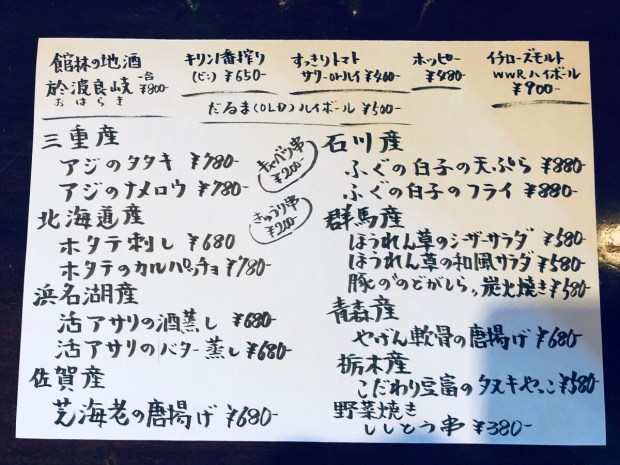 館林の地酒
於波良岐 一合 ¥800-
おはらき
キリン一番搾り
(ビン) ¥650-
すっきりトマト
サワーorハイ ¥400-
ホッピー
¥480-
イチローズモルト
WWRハイボール
¥900-
だるま(OLD)ハイボール ¥500-
三重産
アジのタタキ ¥780-
アジのナメロウ ¥780-
キャベツ串
¥200-
北海道産
きゅうり串
¥200-
ホタテ刺し ¥680
ホタテのカルパッチョ ¥780-
浜名湖産
活アサリの酒蒸し ¥680-
活アサリのバター蒸し ¥680-
佐賀産
芝海老の唐揚げ ¥680-
石川産
ふぐの白子の天ぷら ¥880-
ふぐの白子のフライ ¥880-
群馬産
ほうれん草のシーザーサラダ ¥580-
ほうれん草の和風サラダ ¥580-
豚ののどがしら、炭火焼き ¥580-
青森産
やげん軟骨の唐揚げ ¥680-
栃木産
こだわり豆富のタヌキやっこ ¥580-
野菜焼き
ししとう串 ¥380-